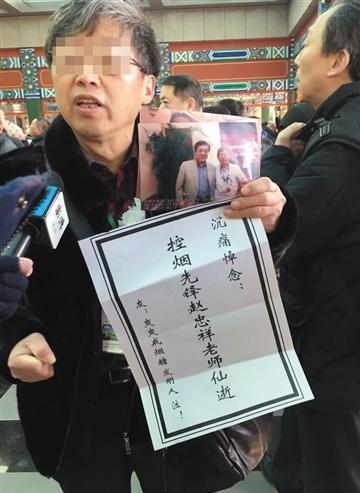 沉痛悼念:
控烟先锋赵忠祥老师仙逝
友:炭炭戒烟糖发明人 注!